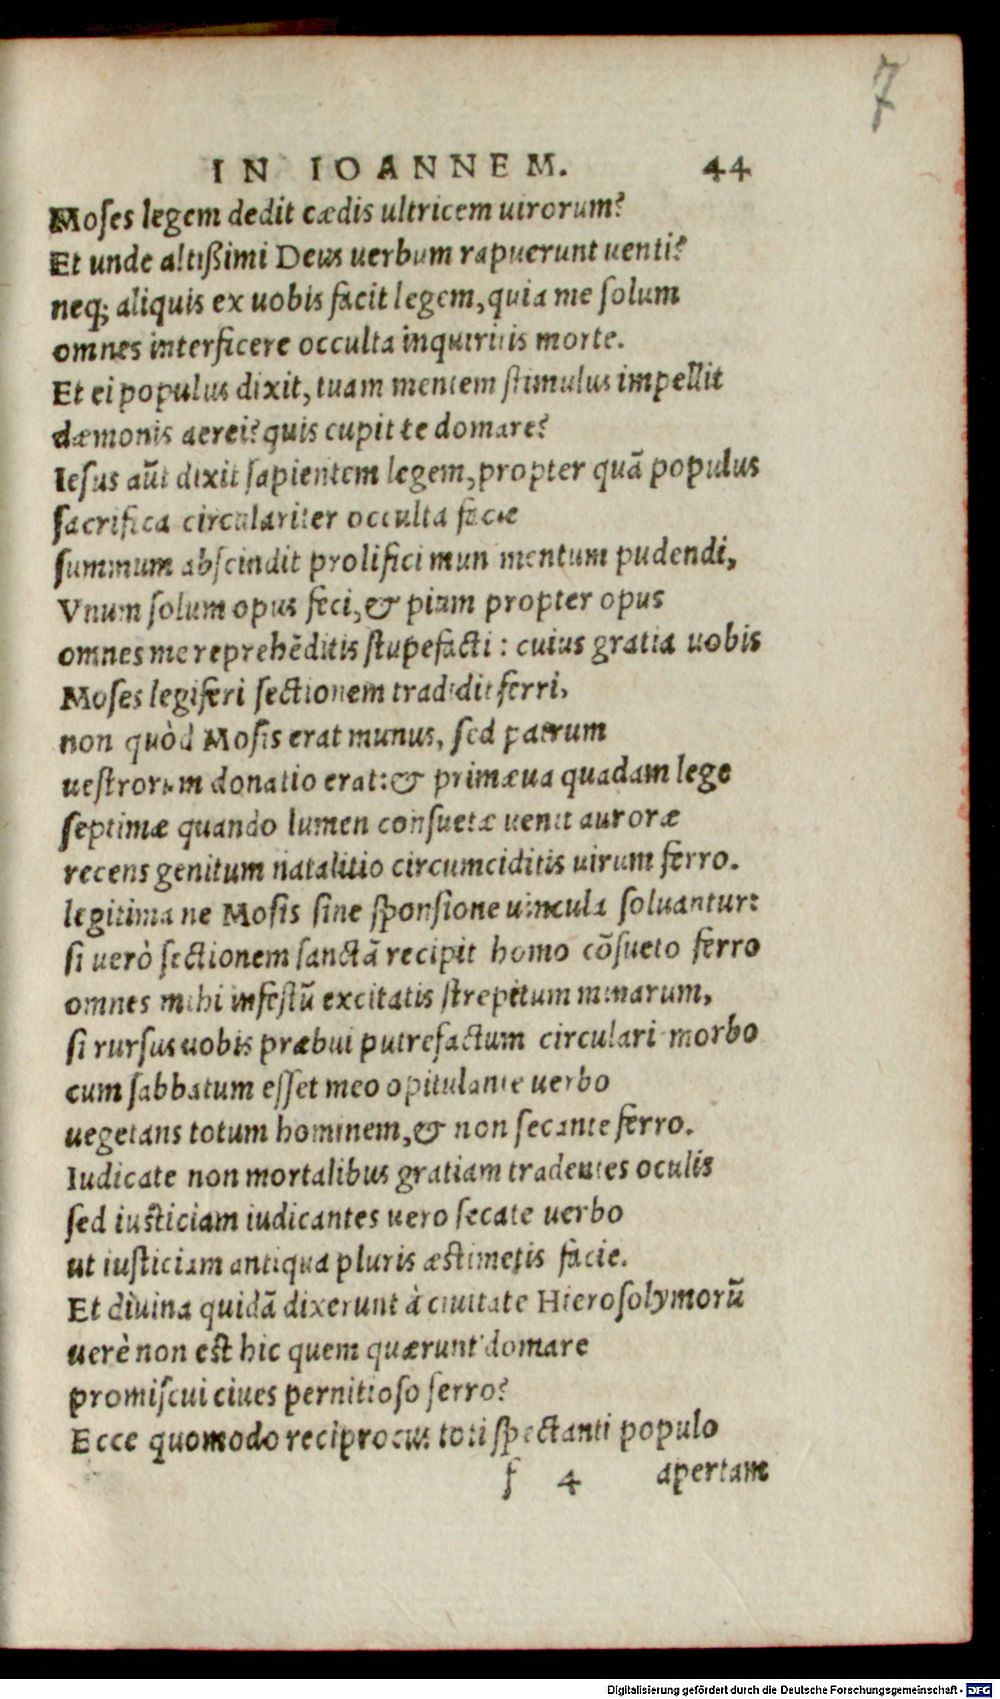 7
IN IOANNEM. 44
Moses legem dedit cædis ultricem uirorum?
Et unde altißimi Deus uerbum rapuerunt uenti?
neq; aliquis ex uobis facit legem, quia me solum
omnes interficere occulta inquiritis morte.
Et ei populus dixit, tuam mentem stimulus impellit
dæmonis aerei? quis cupit te domare?
Iesus aūt dixit sapientem legem, propter quā populus
sacrifica circulariter occulta facie
summum abscindit prolifici mun mentum pudendi,
Vnum solum opus feci, & pium propter opus
omnes me reprehēditis stupefacti: cuius gratia uobis
Moses legiferi sectionem tradidit ferri,
non quòd Mosis erat munus, sed patrum
uestrorum donatio erat: & primæua quadam lege
septimæ quando lumen consuetæ uenit auroræ
recens genitum natalitio circumciditis uirum ferro.
legitima ne Mosis sine sponsione uincula soluantur:
si uerò sectionem sanctā recipit homo cōsueto ferro
omnes mihi infestū excitatis strepitum minarum,
si rursus uobis præbui putrefactum circulari morbo
cum sabbatum esset meo opitulante uerbo
uegetans totum hominem, & non secante ferro.
Iudicate non mortalibus gratiam tradentes oculis
sed iusticiam iudicantes uero secate uerbo
ut iusticiam antiqua pluris æstimetis facie.
Et diuina quidā dixerunt à ciuitate Hierosolymorū
uerè non est hic quem quærunt domare
promiscui ciues pernitioso ferro?
Ecce quomodo reciprocus toti spectanti populo
f 4 apertam
Digitalisierung gefördert durch die Deutsche Forschungsgemeinschaft - DFG